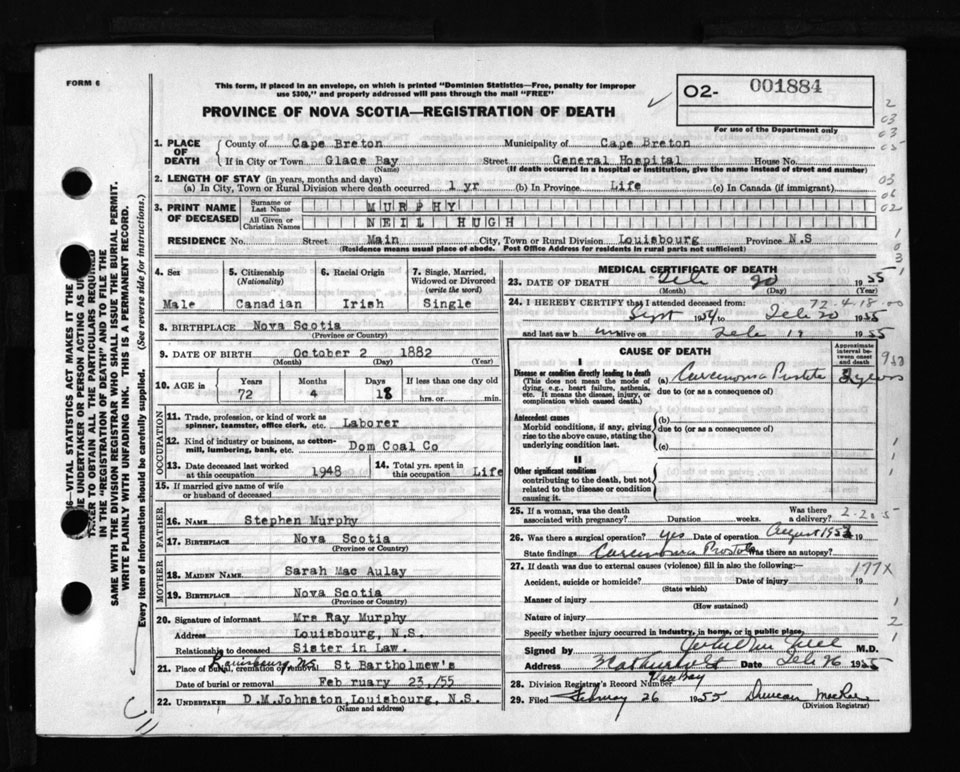 FORM 6
This form, if placed in an envelope, on which is printed "Dominion Statistics—Free, penalty for improper
use $300," and properly addressed will pass through the mail "FREE"
02- 001884
For use of the Department only
PROVINCE OF NOVA SCOTIA—REGISTRATION OF DEATH
1. PLACE OF DEATH County of Cape Breton Municipality of Cape Breton
If in City or Town Glace Bay Street General Hospital House No.
(Name) (If death occurred in a hospital or institution, give the name instead of street and number)
2. LENGTH OF STAY (in years, months and days)
(a) In City, Town or Rural Division where death occurred 1 yr (b) In Province Life (c) In Canada (if immigrant)
3. PRINT NAME OF DECEASED Surname or Last Name MURPHY
All Given or Christian Names NEIL HUGH
RESIDENCE No. Street Main City, Town or Rural Division Louisbourg Province N.S
(Residence means usual place of abode. Post Office Address for residents in rural parts not sufficient)
4. Sex Male
5. Citizenship (Nationality) Canadian
6. Racial Origin Irish
7. Single, Married, Widowed or Divorced (write the word) Single
8. BIRTHPLACE Nova Scotia
(Province or Country)
9. DATE OF BIRTH October 2 1882
(Month) (Day) (Year)
10. AGE in Years 72 Months 4 Days 18 If less than one day old
hrs. or min.
OCCUPATION
11. Trade, profession, or kind of work as
spinner, teamster, office clerk, etc. Laborer
12. Kind of industry or business, as cotton-
mill, lumbering, bank, etc. Dom Coal Co
13. Date deceased last worked
at this occupation 1948
14. Total yrs. spent in
this occupation Life
15. If married give name of wife
or husband of deceased
FATHER
16. NAME Stephen Murphy
17. BIRTHPLACE Nova Scotia
(Province or Country)
MOTHER
18. MAIDEN NAME Sarah Mac Aulay
19. BIRTHPLACE Nova Scotia
(Province or Country)
20. Signature of informant Mrs Ray Murphy
Address Louisbourg, N.S.
Relationship to deceased Sister in Law.
21. Place of burial, cremation or removal Louisbourg N.S St Bartholmew's
Date of burial or removal February 23,/55
22. UNDERTAKER D.M.Johnston,Louisbourg, N.S.
(Name and address)
MEDICAL CERTIFICATE OF DEATH
23. DATE OF DEATH Feb 20 1955
(Month) (Day) (Year)
72-4-18-00
24. I HEREBY CERTIFY that I attended deceased from:
Sept 1954 to Feb 20 1955
and last saw him alive on Feb 19 1955
CAUSE OF DEATH
Approximate interval between onset and death
I
Disease or condition directly leading to death
(This does not mean the mode of dying, e.g., heart failure, asthenia, etc. It means the disease, injury, or complication which caused death.)
(a) Carcinoma Prostate 2 years
due to (or as a consequence of)
Antecedent causes
Morbid conditions, if any, giving rise to the above cause, stating the underlying condition last.
(b)
due to (or as a consequence of)
(c)
II
Other significant conditions
contributing to the death, but not related to the disease or condition causing it.
25. If a woman, was the death
associated with pregnancy? Duration weeks. Was there a delivery?
2-20-5
26. Was there a surgical operation? yes Date of operation August 1953 19
State findings Carcinoma Prostate Was there an autopsy?
27. If death was due to external causes (violence) fill in also the following:—
177X
Accident, suicide or homicide? Date of injury 19
(State which)
Manner of injury
(How sustained)
Nature of injury
Specify whether injury occurred in industry, in home, or in public place.
Signed by M.D.
Address Date Feb 26 1955
28. Division Registrar's Record Number
29. Filed February 26 1955 Duncan MacRae
(Division Registrar)
SAME WITH THE DIVISION REGISTRAR WHO SHALL ISSUE THE BURIAL PERMIT.
WRITE PLAINLY WITH UNFADING INK. THIS IS A PERMANENT RECORD.
Every item of information should be carefully supplied. (See reverse side for instructions.)